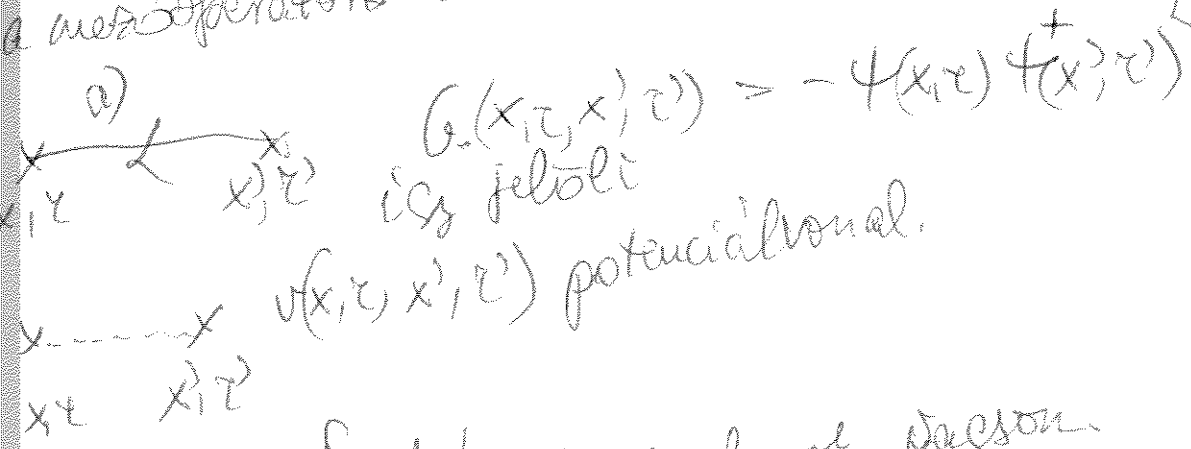 a mezőoperátorok
a)
G.(x,τ,x',τ') = - ψ(x,τ) ψ⁺(x',τ')
x,τ x',τ' így jelöli
v(x,τ,x',τ') potenciálvonal.
x,τ x',τ'